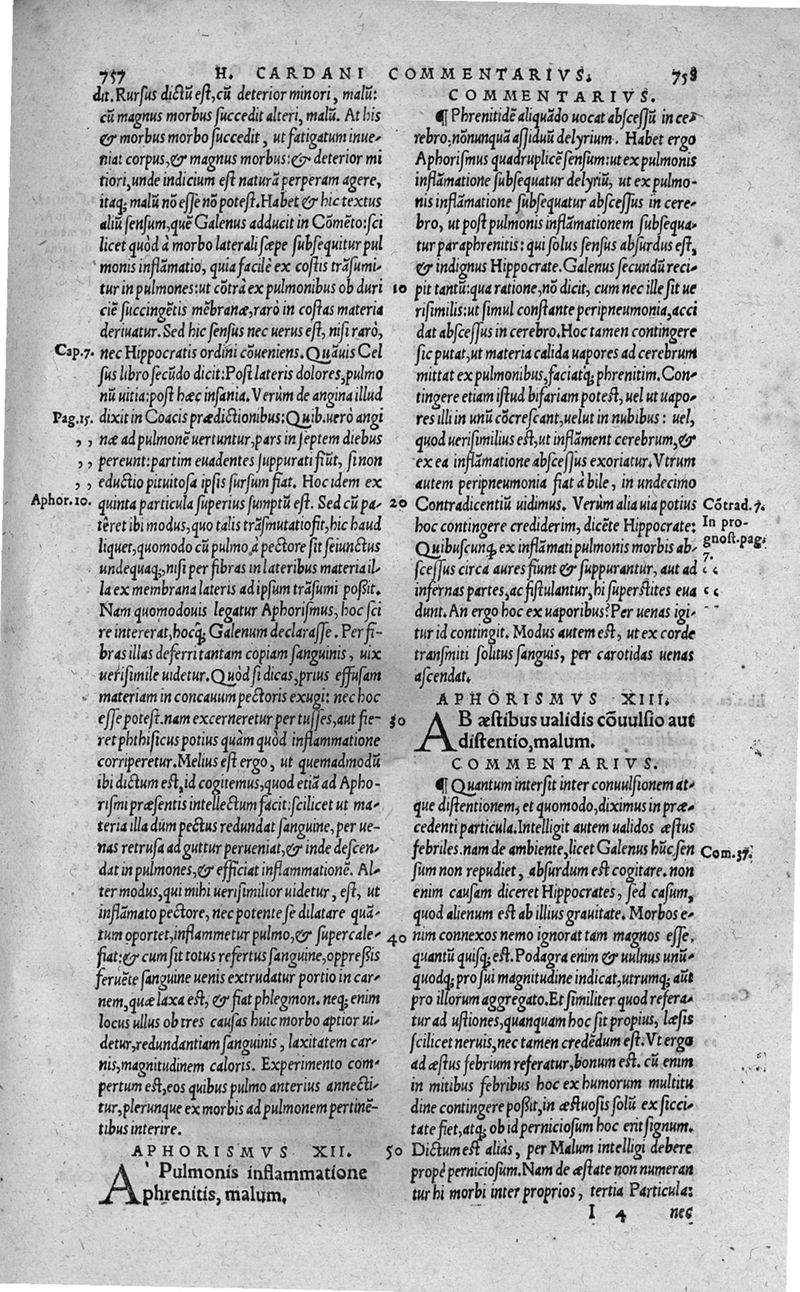 757 H. CARDANI COMMENTARIVS. 758
dit. Rursus dictũ est, cũ deterior minori, malũ:
cũ magnus morbus succedit alteri, malũ. At his
& morbus morbo succedit, ut fatigatum inue-
niat corpus, & magnus morbus: & deterior mi
tiori, unde indicium est naturã perperam agere,
itaq; malũ nõ esse nõ potest. Habet & hic textus
aliũ sensum, quẽ Galenus adducit in Cõmẽto: sci
licet quòd à morbo laterali sæpe subsequitur pul
monis inflãmatio, quia facilè ex costis trãsumi-
tur in pulmones: ut cõtrà ex pulmonibus ob duri
ciẽ succingẽtis mẽbranæ, rarò in costas materia
deriuatur. Sed hic sensus nec uerus est, nisi rarò,
Cap. 7. nec Hippocratis ordini cõueniens. Quãuis Cel
sus libro secũdo dicit: Post lateris dolores, pulmo
nũ uitia: post hæc insania. Verùm de angina illud
Pag. 15. dixit in Coacis prædictionibus: Quib. uerò angi
,, næ ad pulmonẽ uertuntur, pars in septem diebus
,, pereunt: partim euadentes suppurati fiũt, si non
,, eductio pituitosa ipsis sursum fiat. Hoc idem ex
Aphor. 10. quinta particula superius sumptũ est. Sed cũ pa-
tẽret ibi modus, quo talis trãsmutatio fit, hic haud
liquet, quomodo cũ pulmo à pectore sit seiunctus
undequaq;, nisi per fibras in lateribus materia il-
la ex membrana lateris ad ipsum trãsumi possit.
Nam quomodouis legatur Aphorismus, hoc sci
re intererat, hocq; Galenum declarasse. Per fi-
bras illas deferri tantam copiam sanguinis, uix
uerisimile uidetur. Quòd si dicas, prius effusam
materiam in concauum pectoris exugi: nec hoc
esse potest. nam excerneretur per tusses, aut fie-
ret phthisicus potius quàm quòd inflammatione
corriperetur. Melius est ergo, ut quemadmodũ
ibi dictum est, id cogitemus, quod etiã ad Apho-
rismi præsentis intellectum facit: scilicet ut ma-
teria illa dum pectus redundat sanguine, per ue-
nas retrusa ad guttur perueniat, & inde descen-
dat in pulmones, & efficiat inflammationẽ. Al-
ter modus, qui mihi uerisimilior uidetur, est, ut
inflãmato pectore, nec potente se dilatare quã-
tum oportet, inflammetur pulmo, & supercale-
fiat: & cum sit totus refertus sanguine, oppreßis
feruẽte sanguine uenis extrudatur portio in car-
nem, quæ laxa est, & fiat phlegmon. neq; enim
locus ullus ob tres causas huic morbo aptior ui-
detur, redundantiam sanguinis, laxitatem car-
nis, magnitudinem caloris. Experimento com-
pertum est, eos quibus pulmo anterius annecti-
tur, plerunque ex morbis ad pulmonem pertinẽ-
tibus interire.
APHORISMVS XII.
A Pulmonis inflammatione
phrenitis, malum.
COMMENTARIVS.
¶ Phrenitidẽ aliquãdo uocat abscessũ in ce-
rebro, nõnunquã assiduũ delyrium. Habet ergo
Aphorismus quadruplicẽ sensum: ut ex pulmonis
inflãmatione subsequatur delyriũ, ut ex pulmo-
nis inflãmatione subsequatur abscessus in cere-
bro, ut post pulmonis inflãmationem subsequa-
tur paraphrenitis: qui solus sensus absurdus est,
& indignus Hippocrate. Galenus secundũ reci-
10 pit tantũ: qua ratione, nõ dicit, cum nec ille sit ue
risimilis: ut simul constante peripneumonia, acci
dat abscessus in cerebro. Hoc tamen contingere
sic putat, ut materia calida uapores ad cerebrum
mittat ex pulmonibus, faciatq; phrenitim. Con-
tingere etiam istud bifariam potest, uel ut uapo-
res illi in unũ cõcrescant, uelut in nubibus: uel,
quod uerisimilius est, ut inflãment cerebrum, &
ex ea inflãmatione abscessus exoriatur. Vtrum
autem peripneumonia fiat à bile, in undecimo
20 Contradicentiũ uidimus. Verùm alia uia potius Cõtrad. 7.
hoc contingere crediderim, dicẽte Hippocrate: In pro-
Quibuscunq; ex inflãmati pulmonis morbis ab- gnost. pag.
scessus circa aures fiunt & suppurantur, aut ad 7.
infernas partes, ac fistulantur, hi superstites eua
dunt. An ergo hoc ex uaporibus? Per uenas igi-
tur id contingit. Modus autem est, ut ex corde
transmiti solitus sanguis, per carotidas uenas
ascendat.
APHORISMVS XIII.
30 AB æstibus ualidis cõuulsio aut
distentio, malum.
COMMENTARIVS.
¶ Quantum intersit inter conuulsionem at-
que distentionem, et quomodo, diximus in præ-
cedenti particula. Intelligit autem ualidos æstus
febriles. nam de ambiente, licet Galenus hũc sen Com. 37.
sum non repudiet, absurdum est cogitare. non
enim causam diceret Hippocrates, sed casum,
quod alienum est ab illius grauitate. Morbos e-
40 nim connexos nemo ignorat tam magnos esse,
quantũ quisq; est. Podagra enim & uulnus unũ-
quodq; pro sui magnitudine indicat, utrumq; aũt
pro illorum aggregato. Et similiter quod refera-
tur ad ustiones, quanquam hoc sit propius, læsis
scilicet neruis, nec tamen credẽdum est. Vt ergo
ad æstus febrium referatur, bonum est. cũ enim
in mitibus febribus hoc ex humorum multitu
dine contingere poßit, in æstuosis solũ ex sicci-
tate fiet, atq; ob id perniciosum hoc erit signum.
50 Dictum est aliàs, per Malum intelligi debere
propè perniciosum. Nam de æstate non numeran
tur hi morbi inter proprios, tertia Particula:
I 4 nec